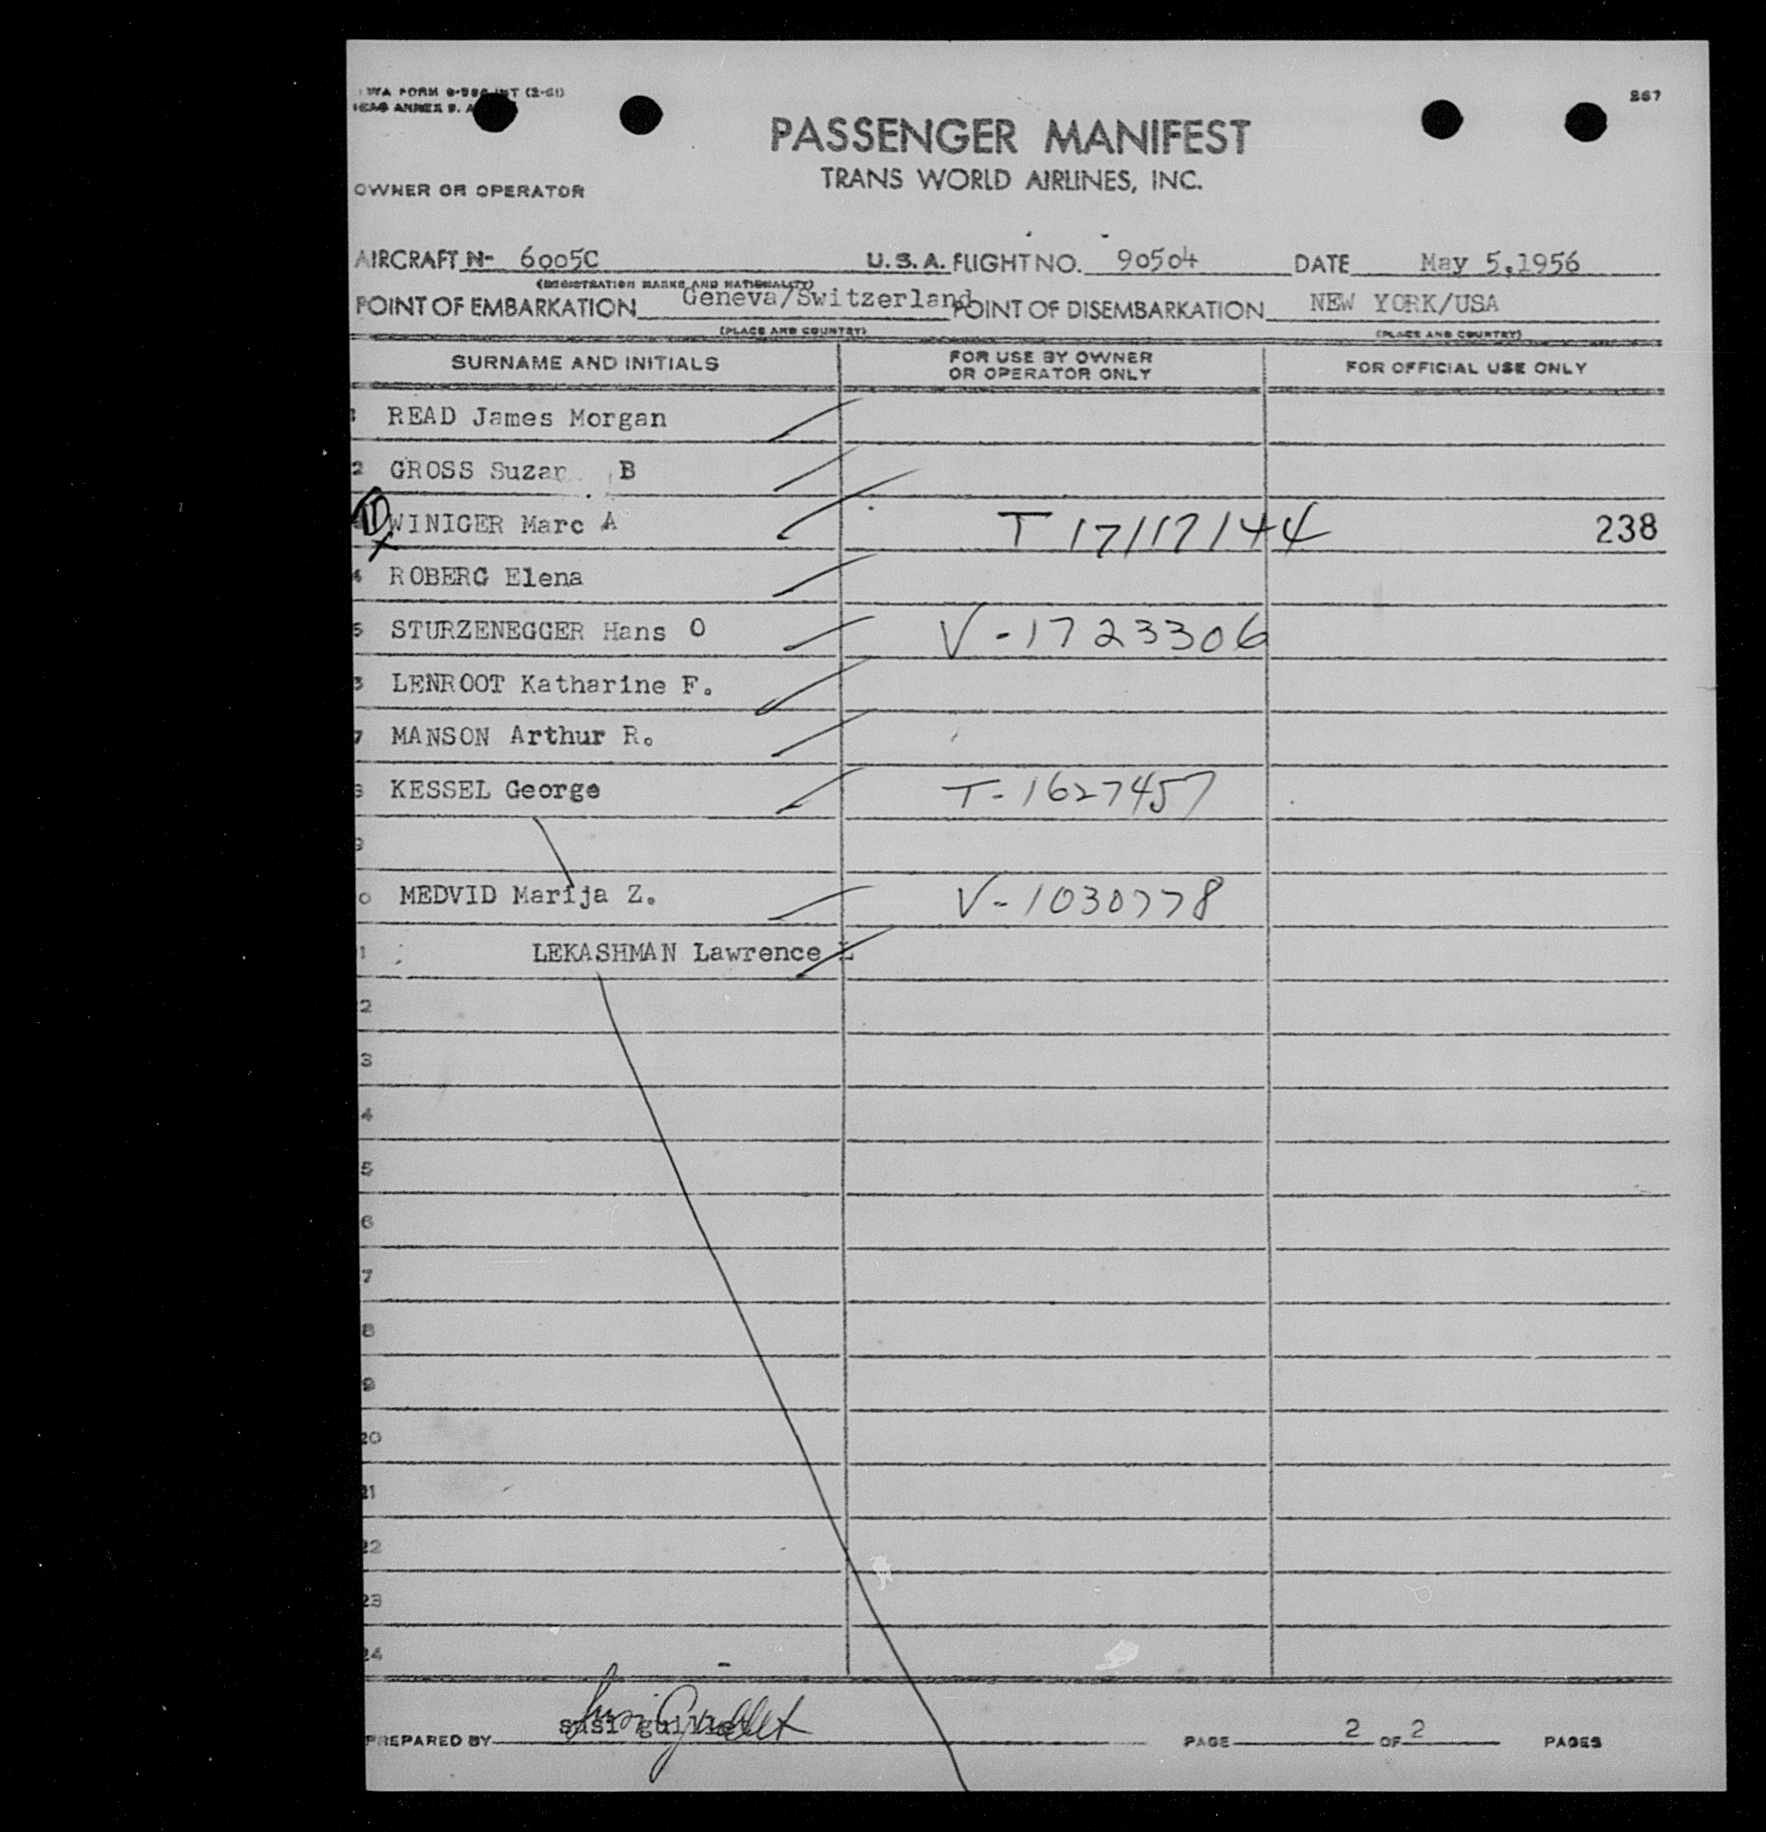 TWA FORM INT (2-51)
ICAO ANNEX 9. A
267
PASSENGER MANIFEST
TRANS WORLD AIRLINES, INC.
OWNER OR OPERATOR
AIRCRAFT N- 6005C U.S.A. FLIGHT NO. 90504 DATE May 5,1956
(REGISTRATION MARKS AND NATIONALITY)
POINT OF EMBARKATION Geneva/Switzerland POINT OF DISEMBARKATION NEW YORK/USA
(PLACE AND COUNTRY) (PLACE AND COUNTRY)
SURNAME AND INITIALS FOR USE BY OWNER OR OPERATOR ONLY FOR OFFICIAL USE ONLY
1 READ James Morgan
2 GROSS Suzan B
WINIGER Marc A T 17/17/144 238
4 ROBERG Elena
5 STURZENEGGER Hans O V-1723306
6 LENROOT Katharine F.
7 MANSON Arthur R.
8 KESSEL George T-1627457
9
0 MEDVID Marija Z. V-1030778
1 LEKASHMAN Lawrence L
2
3
4
5
6
7
8
9
20
21
22
23
24
PREPARED BY susi PAGE 2 OF 2 PAGES